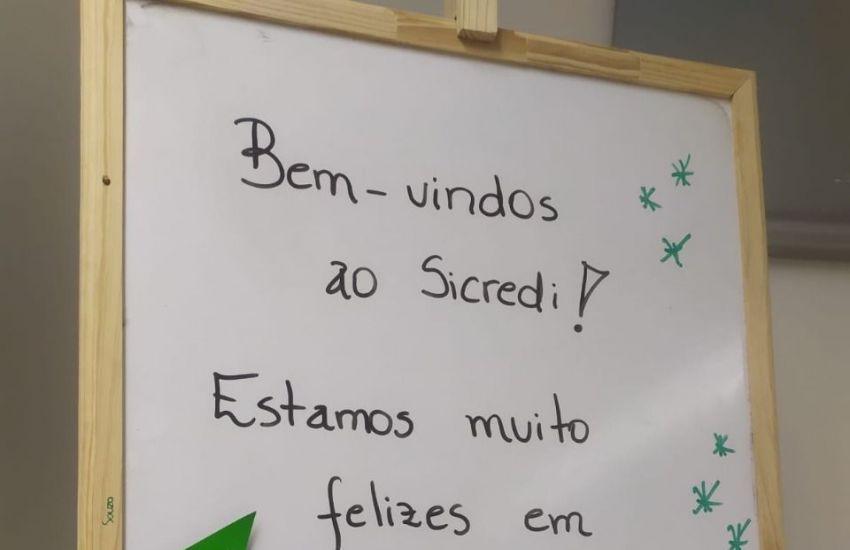 Bem-vindos
ao Sicredi!
Estamos muito
felizes em
Souza